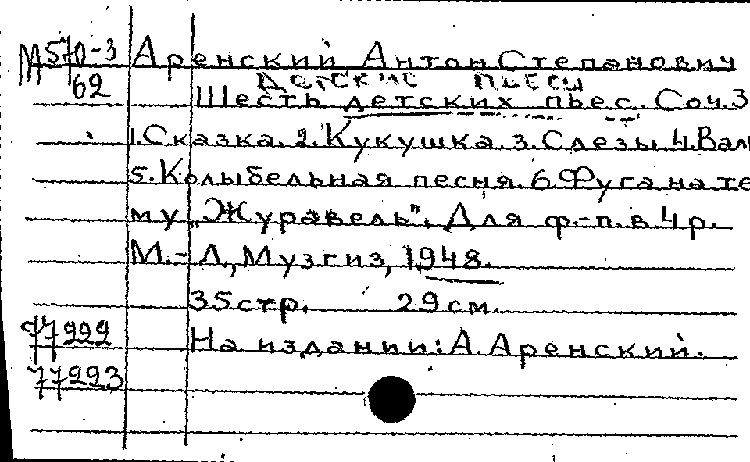 М570-3 Аренский Антон Степанович
62 Детские пьесы
Шесть детских пьес. Соч.3
1.Сказка. 2.Кукушка. 3.Слезы 4.Вал
5.Колыбельная песня. 6.Фуга на те
му „Журавель". Для ф-п. в 4 р.
М.-Л., Музгиз, 1948.
35 стр. 29 см.
77222 На издании: А Аренский.
77223